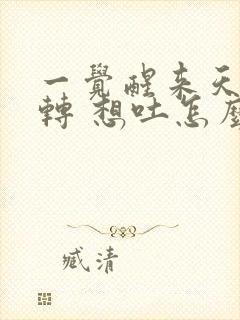 一覺醒来天
轉 想吐怎
臧清